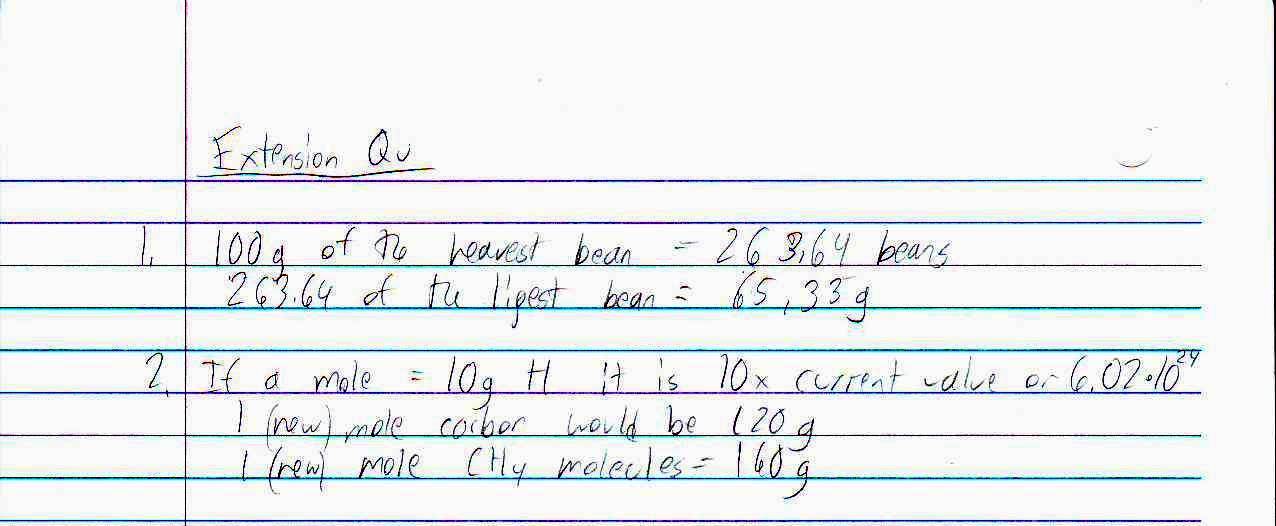 Extension Qu
1. 100g of the heavest bean = 263,64 beans
263.64 of the ligest bean = 65,33g
2. If a mole = 10g H it is 10x current value or 6,02•10²⁴
1 (new) mole carbon would be 120g
1 (new) mole CH4 molecules = 160g